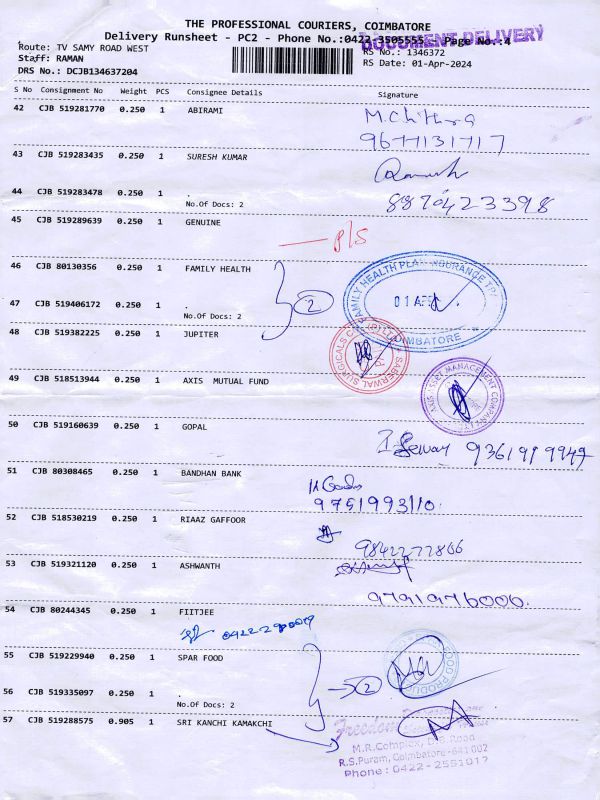 THE PROFESSIONAL COURIERS, COIMBATORE
Delivery Runsheet - PC2 - Phone No.:0422-3505555 Page No.:4
DOCUMENT DELIVERY
Route: TV SAMY ROAD WEST
RS No.: 1346372
Staff: RAMAN
RS Date: 01-Apr-2024
DRS No.: DCJB134637204
S No Consignment No Weight PCS Consignee Details Signature
42 CJB 519281770 0.250 1 ABIRAMI
M.Chithra
9677131717
43 CJB 519283435 0.250 1 SURESH KUMAR
44 CJB 519283478 0.250 1 .
No.Of Docs: 2
8870423398
45 CJB 519289639 0.250 1 GENUINE
P/S
46 CJB 80130356 0.250 1 FAMILY HEALTH
FAMILY HEALTH PLAN INSURANCE TPA
01 APR
COIMBATORE
47 CJB 519406172 0.250 1 .
No.Of Docs: 2
2
48 CJB 519382225 0.250 1 JUPITER
SABERWAL SURGICALS
49 CJB 518513944 0.250 1 AXIS MUTUAL FUND
AXIS ASSET MANAGEMENT COMPANY
50 CJB 519160639 0.250 1 GOPAL
9361999947
51 CJB 80308465 0.250 1 BANDHAN BANK
9751993110.
52 CJB 518530219 0.250 1 RIAAZ GAFFOOR
9842277866
53 CJB 519321120 0.250 1 ASHWANTH
9791976000.
54 CJB 80244345 0.250 1 FIITJEE
55 CJB 519229940 0.250 1 SPAR FOOD
FOOD PRODUCTS
56 CJB 519335097 0.250 1 .
No.Of Docs: 2
2
57 CJB 519288575 0.905 1 SRI KANCHI KAMAKCHI
Freedom
M.R.Complex, D.B.Road
R.S.Puram, Coimbatore-641 002
Phone : 0422-2551017